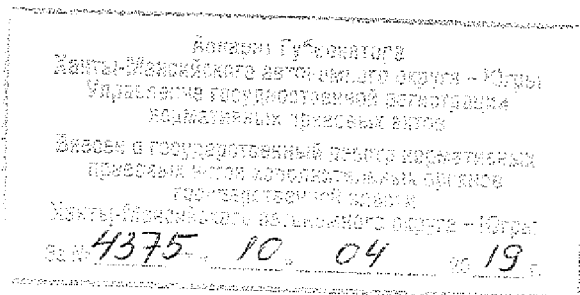 Аппарат Губернатора
Ханты-Мансийского автономного округа – Югры
Управление государственной регистрации
нормативных правовых актов
Внесен в государственный реестр нормативных
правовых актов исполнительных органов
государственной власти
Ханты-Мансийского автономного округа – Югры
За № 4375 « 10 » 04 20 19 г.